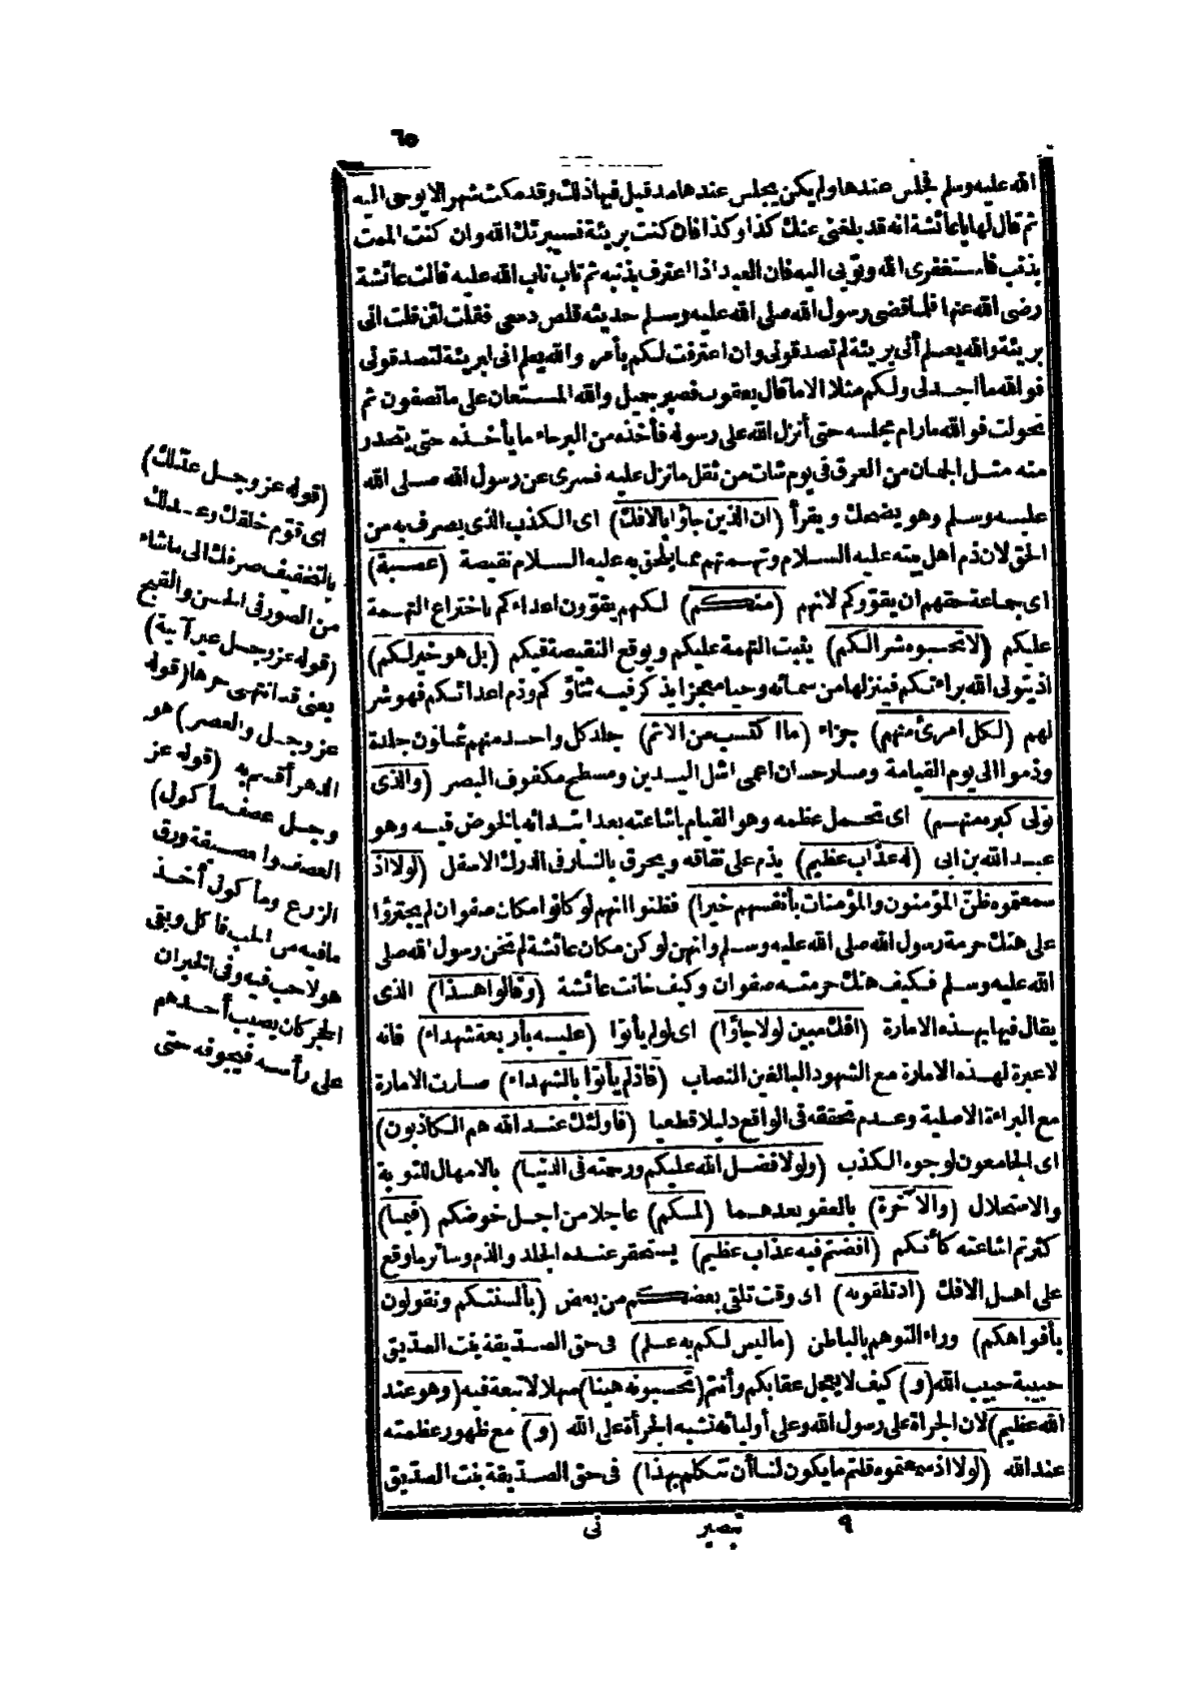 ٦٥
الله عليه وسلم فجلس عندها ولم يكن يجلس عندها مذ قيل فيها ذلك وقد مكث شهرا لا يوحى اليه
ثم قال لها يا عائشة انه قد بلغنى عنك كذا وكذا فان كنت بريئة فسيبرئك الله وان كنت الممت
بذنب فاستغفرى الله وتوبى اليه فان العبد اذا اعترف بذنبه ثم تاب تاب الله عليه قالت عائشة
رضى الله عنها فلما قضى رسول الله صلى الله عليه وسلم حديثه قلص دمعى فقلت لئن قلت انى
بريئة والله يعلم أنى بريئة لم تصدقونى وان اعترفت لكم بأمر والله يعلم انى لبريئة لتصدقونى
فوالله ما اجد لى ولكم مثلا الا ما قال يعقوب فصبر جميل والله المستعان على ما تصفون ثم
تحولت فوالله مارام مجلسه حتى أنزل الله على رسوله فأخذه من البرحاء ما يأخذه حتى يتحدر
منه مثل الجمان من العرق فى يوم شات من ثقل ما نزل عليه فسرى عن رسول الله صلى الله
عليه وسلم وهو يضحك ويقرأ (ان الذين جاؤا بالافك) اى الكذب الذى يصرف به من
الحق لان ذم اهل بيته عليه السلام وتهمتهم مما يلحق به عليه السلام نقيصة (عصبة)
اى جماعة حقهم ان يقووكم لانهم (منكم) لكنهم يقوون اعداءكم باختراع التهمة
عليكم (لا تحسبوه شرا لكم) يثبت التهمة عليكم ويوقع النقيصة فيكم (بل هو خير لكم)
اذ يتولى الله براءتكم فينزلها من سمائه وحيا معجزا يذكر فيه ثناؤكم وذم اعدائكم فهو شر
لهم (لكل امرئ منهم) جزاء (ما اكتسب من الاثم) جلد كل واحد منهم ثمانون جلدة
وذموا الى يوم القيامة وصار حسان اعمى اشل اليدين ومسطح مكفوف البصر (والذى
تولى كبره منهم) اى تحمل عظمه وهو القيام باشاعته بعد ابتدائه بالخوض فيه وهو
عبد الله بن ابى (له عذاب عظيم) يذم على نفاقه ويحرق بالنار فى الدرك الاسفل (لولا اذ
سمعتموه ظن المؤمنون والمؤمنات بأنفسهم خيرا) فظنوا انهم لو كانوا مكان صفوان لم يجترؤا
على هتك حرمة رسول الله صلى الله عليه وسلم وانهن لو كن مكان عائشة لم تخن رسول الله صلى
الله عليه وسلم فكيف هتك حرمته صفوان وكيف خانت عائشة (وقالوا هذا) الذى
يقال فيها بهذه الامارة (افك مبين لولا جاؤا) اى لو لم يأتوا (عليه بأربعة شهداء) فانه
لا عبرة لهذه الامارة مع الشهود البالغين النصاب (فاذ لم يأتوا بالشهداء) صارت الامارة
مع البراءة الاصلية وعدم تحققه فى الواقع دليلا قطعيا (فاولئك عند الله هم الكاذبون)
اى الجامعون لوجوه الكذب (ولولا فضل الله عليكم ورحمته فى الدنيا) بالامهال للتوبة
والاستحلال (والآخرة) بالعفو بعدهما (لمسكم) عاجلا من اجل خوضكم (فيما)
كثرتم اشاعته كأنكم (افضتم فيه عذاب عظيم) يستحقر عنده الجلد والذم وسائر ما وقع
على اهل الافك (اذ تلقونه) اى وقت تلقى بعضكم من بعض (بألسنتكم وتقولون
بأفواهكم) وراء التوهم بالباطن (ما ليس لكم به علم) فى حق الصديقة بنت الصديق
حبيبة حبيب الله (و) كيف لا يعجل عقابكم وأنتم (تحسبونه هينا) سهلا لا تبعة فيه (وهو عند
الله عظيم) لان الجراة على رسول الله وعلى أوليائه تشبه الجرأة على الله (و) مع ظهور عظمته
عند الله (لولا اذ سمعتموه قلتم ما يكون لنا أن نتكلم بهذا) فى حق الصديقة بنت الصديق
٩ تبصير نى
(قوله عز وجل عدلك)
اى قوم خلقك وعدلك
بالتخفيف صرفك الى ما شاء
من الصور فى الحسن والقبح
(قوله عز وجل عين آنية)
يعنى قد انتهى حرها (قوله
عز وجل والعصر) هو
الدهر أقسم به (قوله عز
وجل عصف مأكول)
العصف والعصيفة ورق
الزرع ومأكول أخذ
ما فيه من الحب فأكل وبقى
هو لا حب فيه وفى الخبر ان
الحجر كان يصيب أحدهم
على رأسه فيجوفه حتى